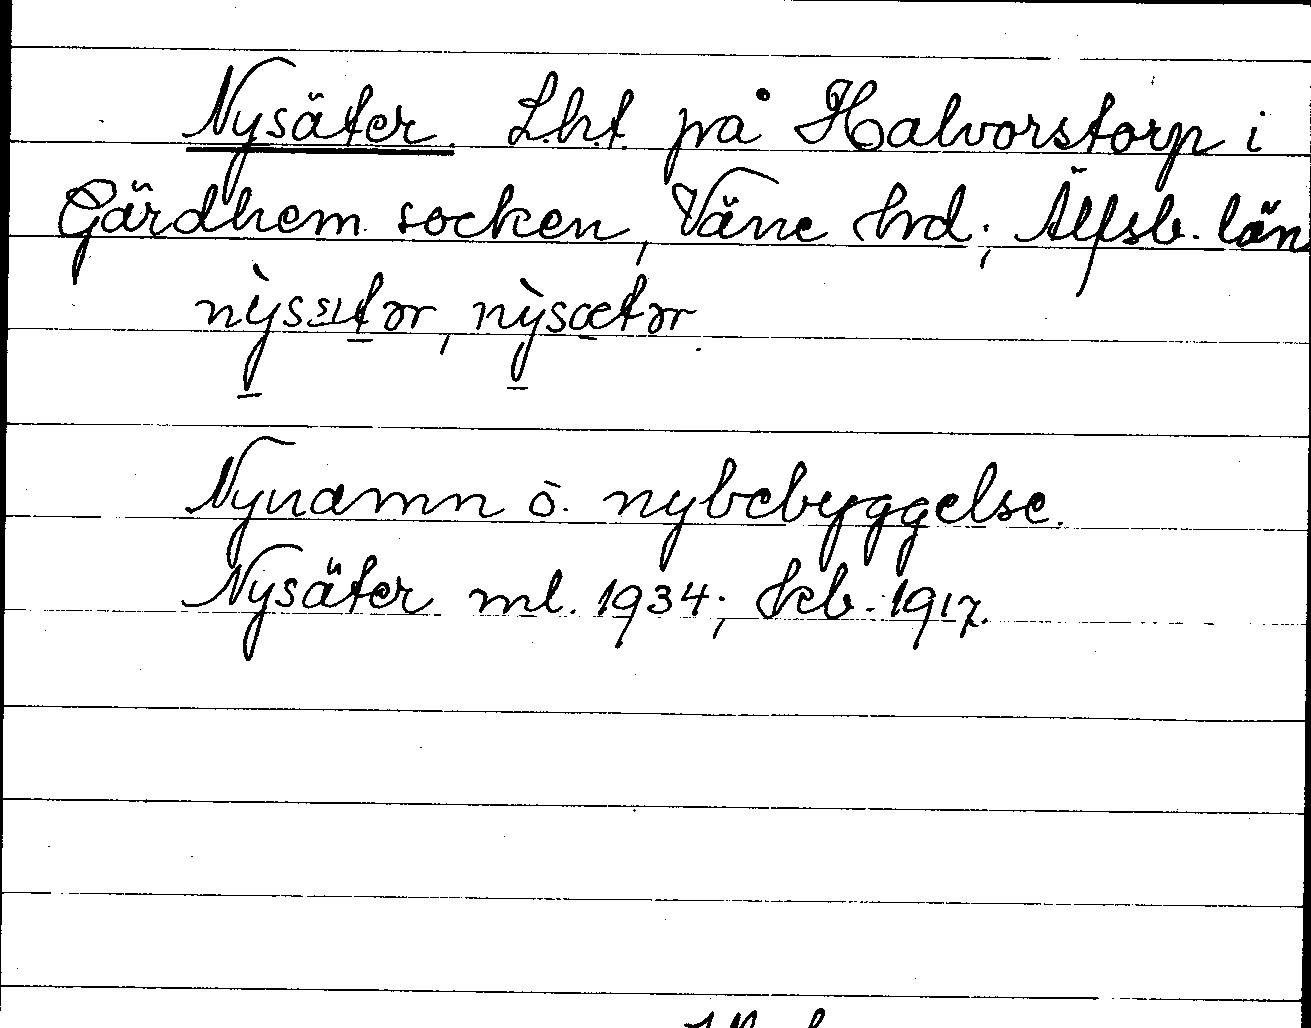 Nysäter. Lht. på Halvorstorp i
Gärdhem socken, Väne hrd; Älfsb. län
nỳsætər
Nynamn o. nybebyggelse.
Nysäter ml. 1934; kb. 1917.